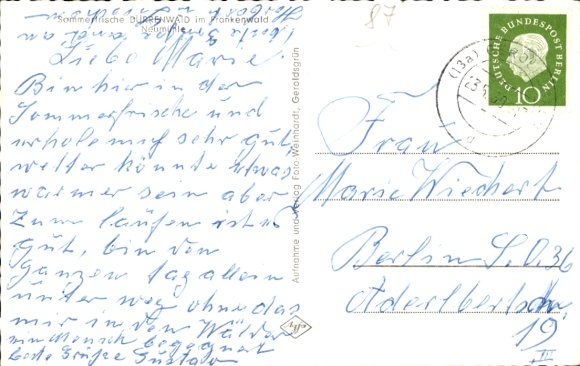 Sommerfrische DÜRRENWAID im Frankenwald
Neumühle
Liebe Marie!
Bin hier in der
Sommerfrische und
erhole mich sehr gut
wetter könnte etwas
warmer sein aber
zum laufen ist es
gut, bin den
ganzen tag allein
unter weg ohne das
mir in den Wälder
ein Mensch begegnet
beste Grüße Gustav
Aufnahme und Verlag Foto Weinhardt, Geroldsgrün
87
DEUTSCHE BUNDESPOST BERLIN
10
(13a)
Frau
Marie Wiechert
Berlin S.O. 36
Adalbertstr.
19
III